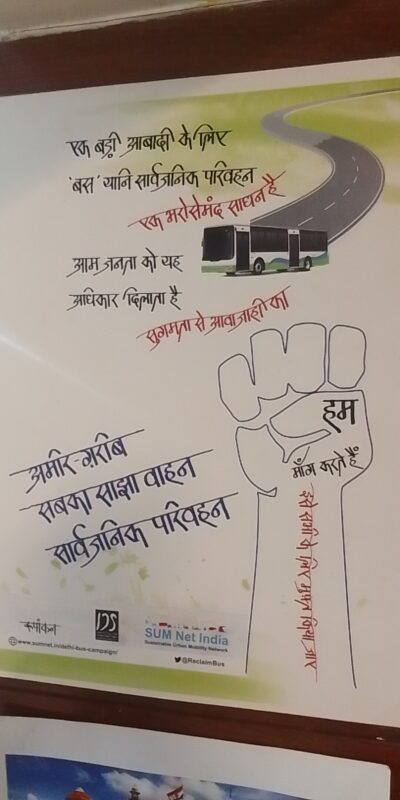 एक बड़ी आबादी के लिए
'बस' यानि सार्वजनिक परिवहन
एक भरोसेमंद साधन है
आम जनता को यह
अधिकार दिलाता है
सुगमता से आवाजाही का
हम
माँग करते हैं
इसे सभी के लिए मुफ़्त किया जाए
अमीर-ग़रीब
सबका साझा वाहन
सार्वजनिक परिवहन
IDS
SUM Net India
Sustainable Urban Mobility Network
www.sumnet.in/delhi-bus-campaign/
@ReclaimBus